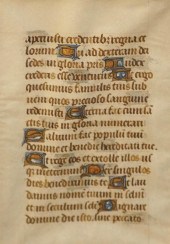 aperuisti credentibus regna ce
lorum Tu ad dexteram dei
sedes in gloria pris Iudex
crederis esse venturus Te ergo
quesumus famulis tuis sub
veni quos precioso sanguine
redemisti Eterna fac cum sc
tis in gloria numerari
Salvum fac populum tuum
domine et benedic hereditati tue
Et rege eos et extolle illos us
que in eternum Per singulos
dies benedicimus te Et lau
damus nomen tuum in seculum
et in seculum seculi Dignare
domine die isto sine peccato